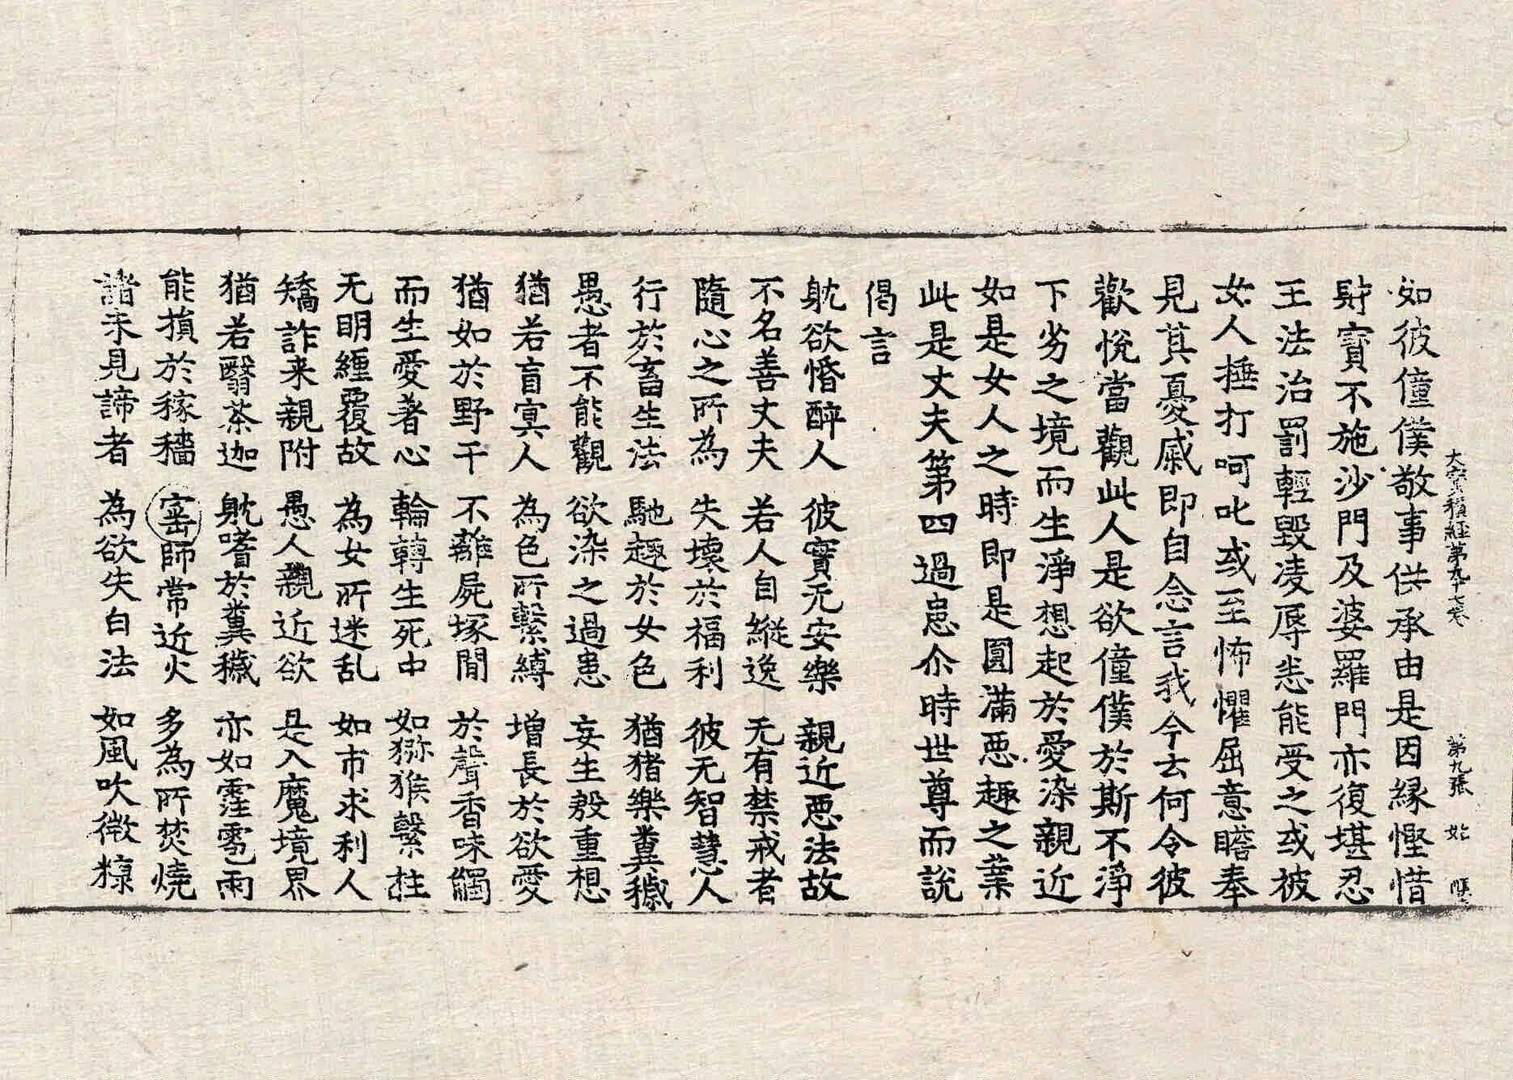 大寶積經第九十七卷 第九張 始
如彼僮僕敬事供承由是因緣慳惜
財寶不施沙門及婆羅門亦復堪忍
王法治罰輕毀凌辱悉能受之或被
女人捶打呵叱或至怖懼屈意瞻奉
見其憂慼即自念言我今去何令彼
歡悅當觀此人是欲僮僕於斯不淨
下劣之境而生淨想起於愛染親近
如是女人之時即是圓滿惡趣之業
此是丈夫第四過患尒時世尊而說
偈言
躭欲惛醉人 彼實无安樂 親近惡法故
不名善丈夫 若人自縱逸 无有禁戒者
隨心之所為 失壞於福利 彼无智慧人
行於畜生法 馳趣於女色 猶猪樂糞穢
愚者不能觀 欲染之過患 妄生殷重想
猶若盲冥人 為色所繫縛 增長於欲愛
猶如於野干 不離屍塚閒 於聲香味觸
而生愛著心 輪轉生死中 如猕猴繫柱
无明纏覆故 為女所迷乱 如市求利人
矯詐来親附 愚人親近欲 是入魔境界
猶若翳茶迦 躭嗜於糞穢 亦如霔雹雨
能損於稼穡 窑師常近火 多為所焚燒
諸未見諦者 為欲失白法 如風吹微糠